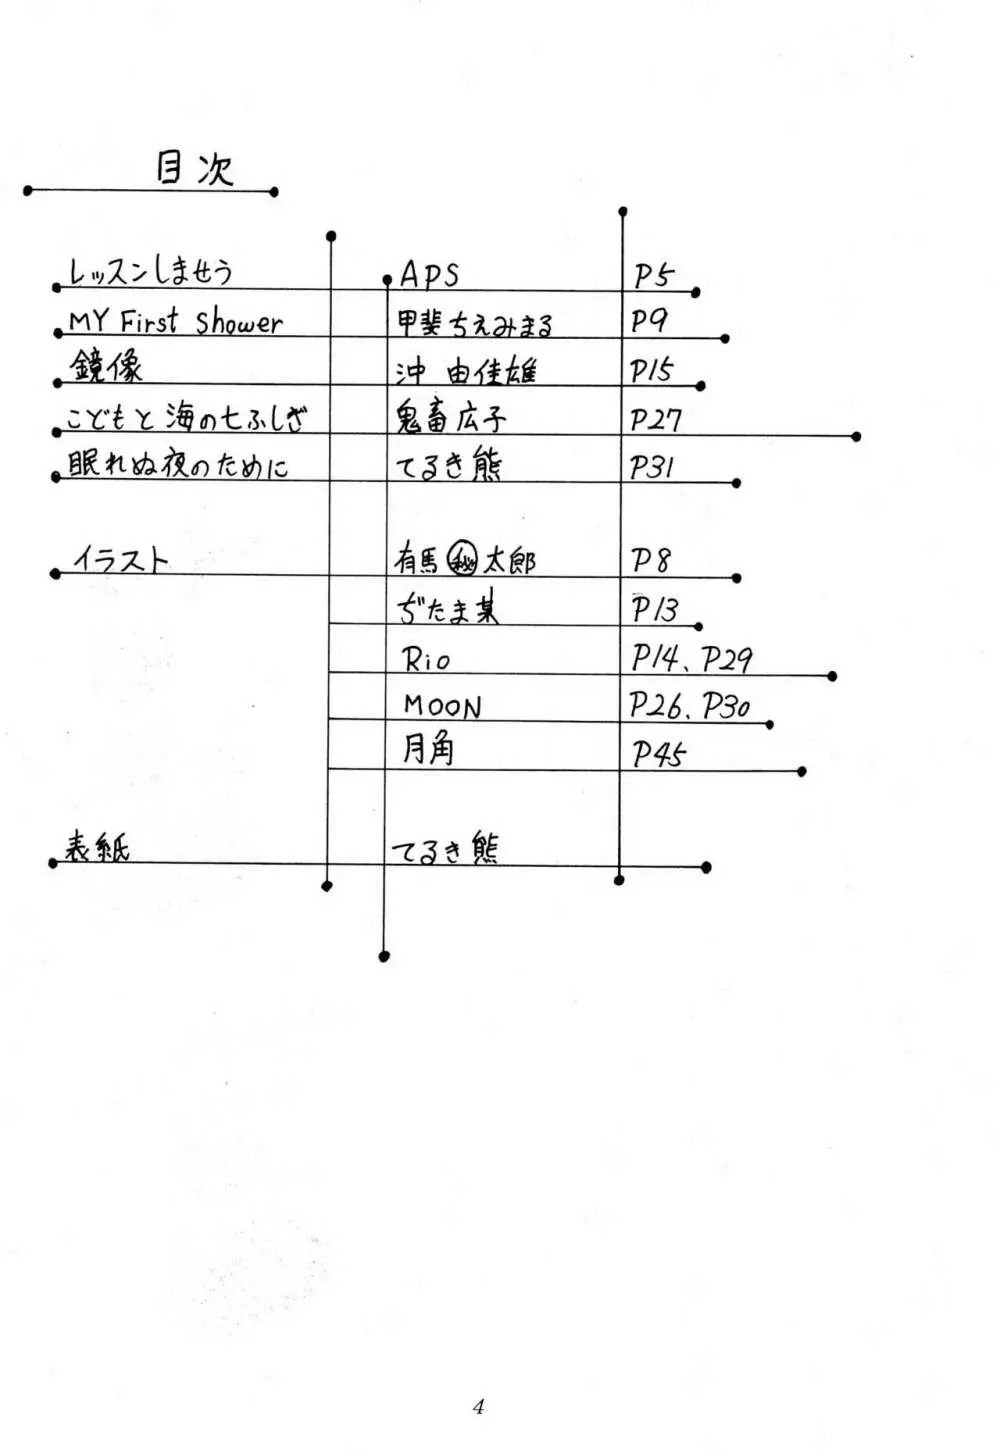 目次
レッスンしませう APS P5
MY First Shower 甲斐ちえみまる P9
鏡像 沖由佳雄 P15
こどもと海の七ふしぎ 鬼畜広子 P27
眠れぬ夜のために てるき熊 P31
イラスト 有馬㊙太郎 P8
ぢたま某 P13
Rio P14、P29
MOON P26、P30
月角 P45
表紙 てるき熊
4